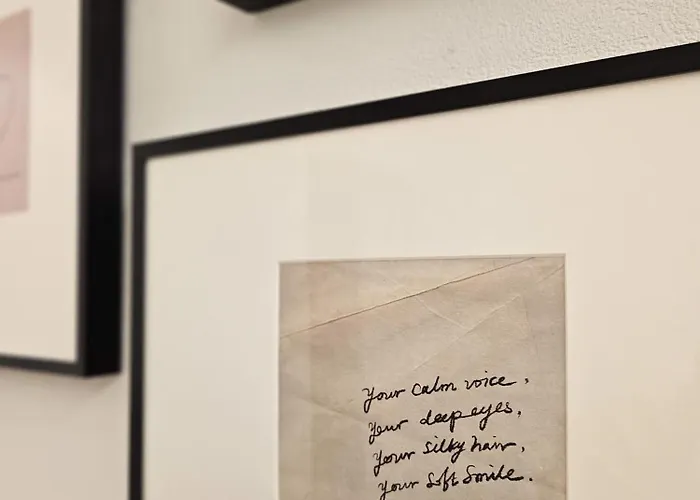 your calm voice,
your deep eyes,
your silky hair,
your soft smile.